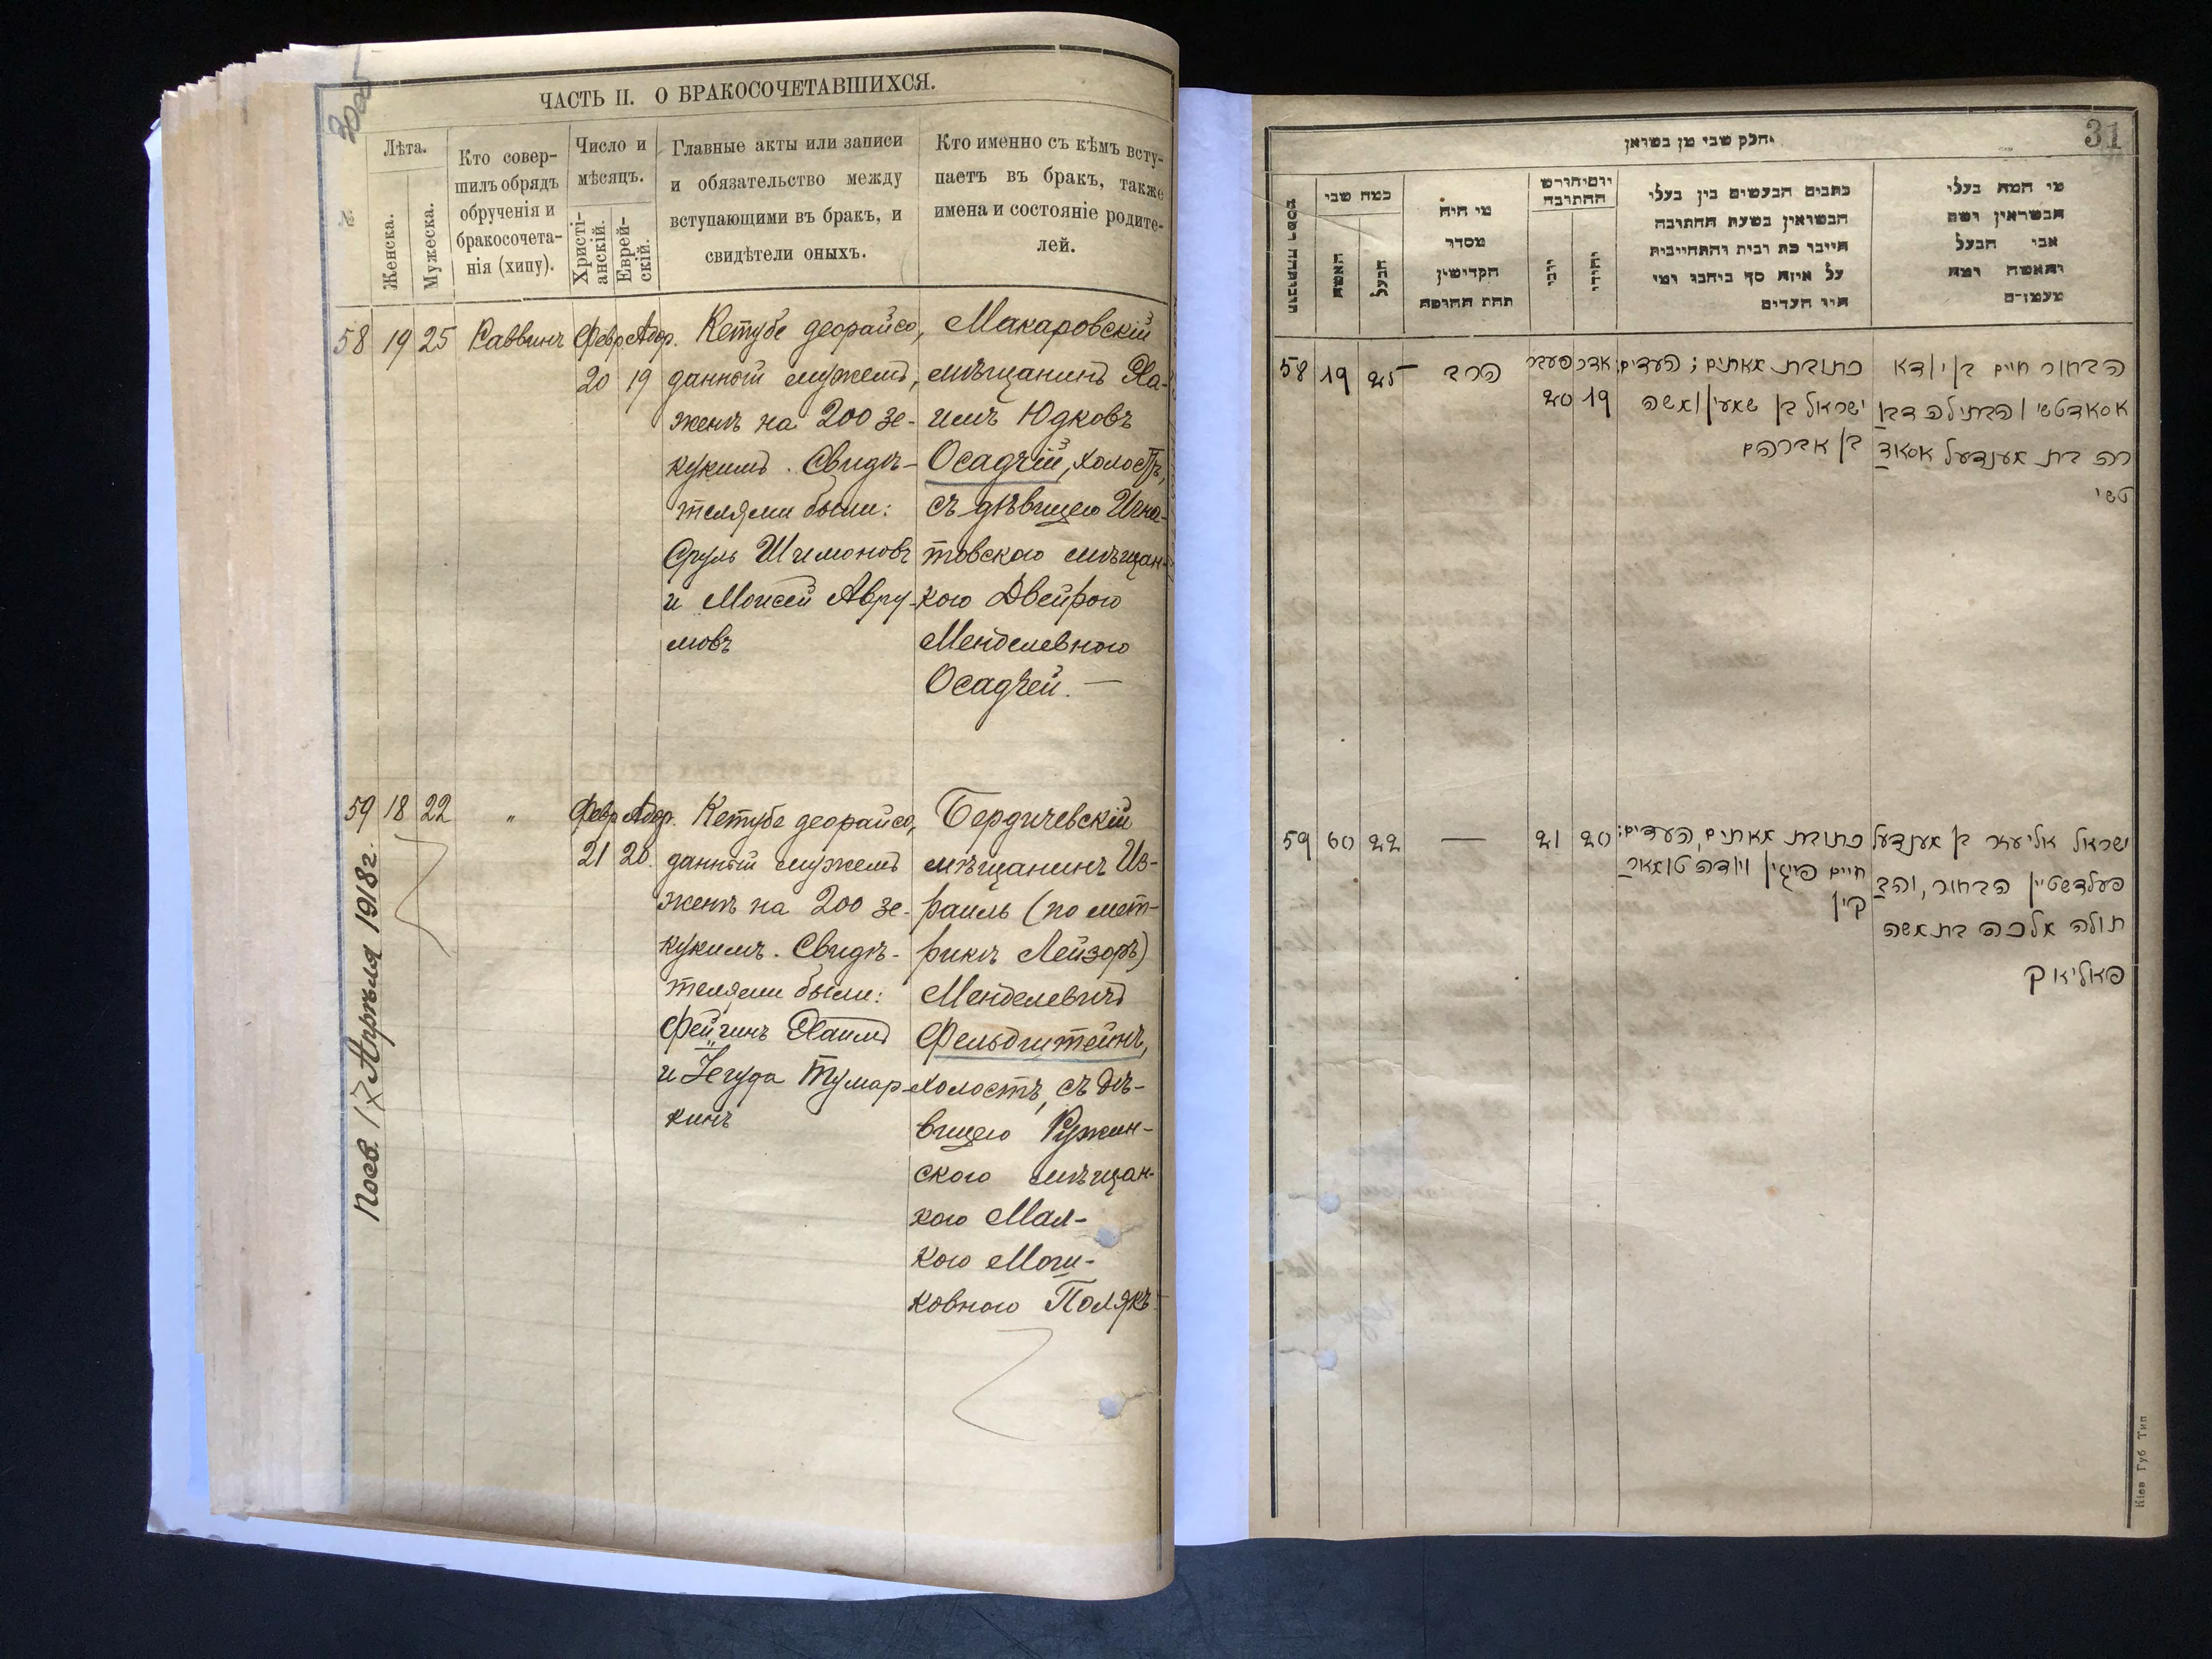 ЧАСТЬ II. О БРАКОСОЧЕТАВШИХСЯ.
№.
Лѣта.
Женска.
Мужеска.
Кто совер-
шилъ обрядъ
обрученія и
бракосочета-
нія (хипу).
Число и
мѣсяцъ.
Христі-
анскій.
Еврей-
скій.
Главные акты или записи
и обязательство между
вступающими въ бракъ, и
свидѣтели оныхъ.
Кто именно съ кѣмъ всту-
паетъ въ бракъ, также
имена и состояніе родите-
лей.
58 19 25 Раввинъ
Февр. Адор.
20 19
Кетубе деорайсо,
данной мужемъ,
женѣ на 200 зе-
кукимъ. Свидѣ-
телями были:
Сруль Шимоновъ
и Моисей Авру-
мовъ
Макаровскій
мѣщанинъ Ха-
имъ Юдковъ
Осадчій, холостъ,
съ дѣвицею Игна-
товскою мѣщан-
кою Двейрою
Менделевною
Осадчей. —
59 18 22 "
Февр. Адор.
21 20.
Кетубе деорайсо,
данной мужемъ
женѣ на 200 зе-
кукимъ. Свидѣ-
телями были:
Фейгинъ Хаимъ
и Іегуда Тумар-
кинъ
Бердичевскій
мѣщанинъ Из-
раиль (по мет-
рикѣ Лейзоръ)
Менделевичъ
Фельдштейнъ,
холостъ, съ дѣ-
вицею Ружин-
скою мѣщан-
кою Мал-
кою Мош-
ковною Полякъ
Посв. 17 Апрѣля 1918 г.
31
מי המה בעלי
הנשואין ושם
אבי הבעל
והאשה ומה
מעמדם
כתבים הנעשים בין בעלי
הנשואין בשעת החתונה
על איזה סך כיתבו ומי
היו העדים
מי היה
מסדר
הקדושין
תחת החופה
כמה שני
הבעל
האשה
58 19 25 הרב
אדר פעבר
20 19
כתובת מאתים; העדים:
ישראל בן שמעון ומשה
בן אברהם
הבחור חיים בן יודא
אסאדטשי והבתולה דבו
רה בת מענדעל אסאד
טשי
59 60 22 — 21 20
כתובת מאתים, העדים:
חיים פייגין ויודה טומאר
קין
ישראל אליעזר בן מענדעל
פעלדשטיין הבחור, והב
תולה מלכה בת משה
פאליאק
Кіев Губ Тип